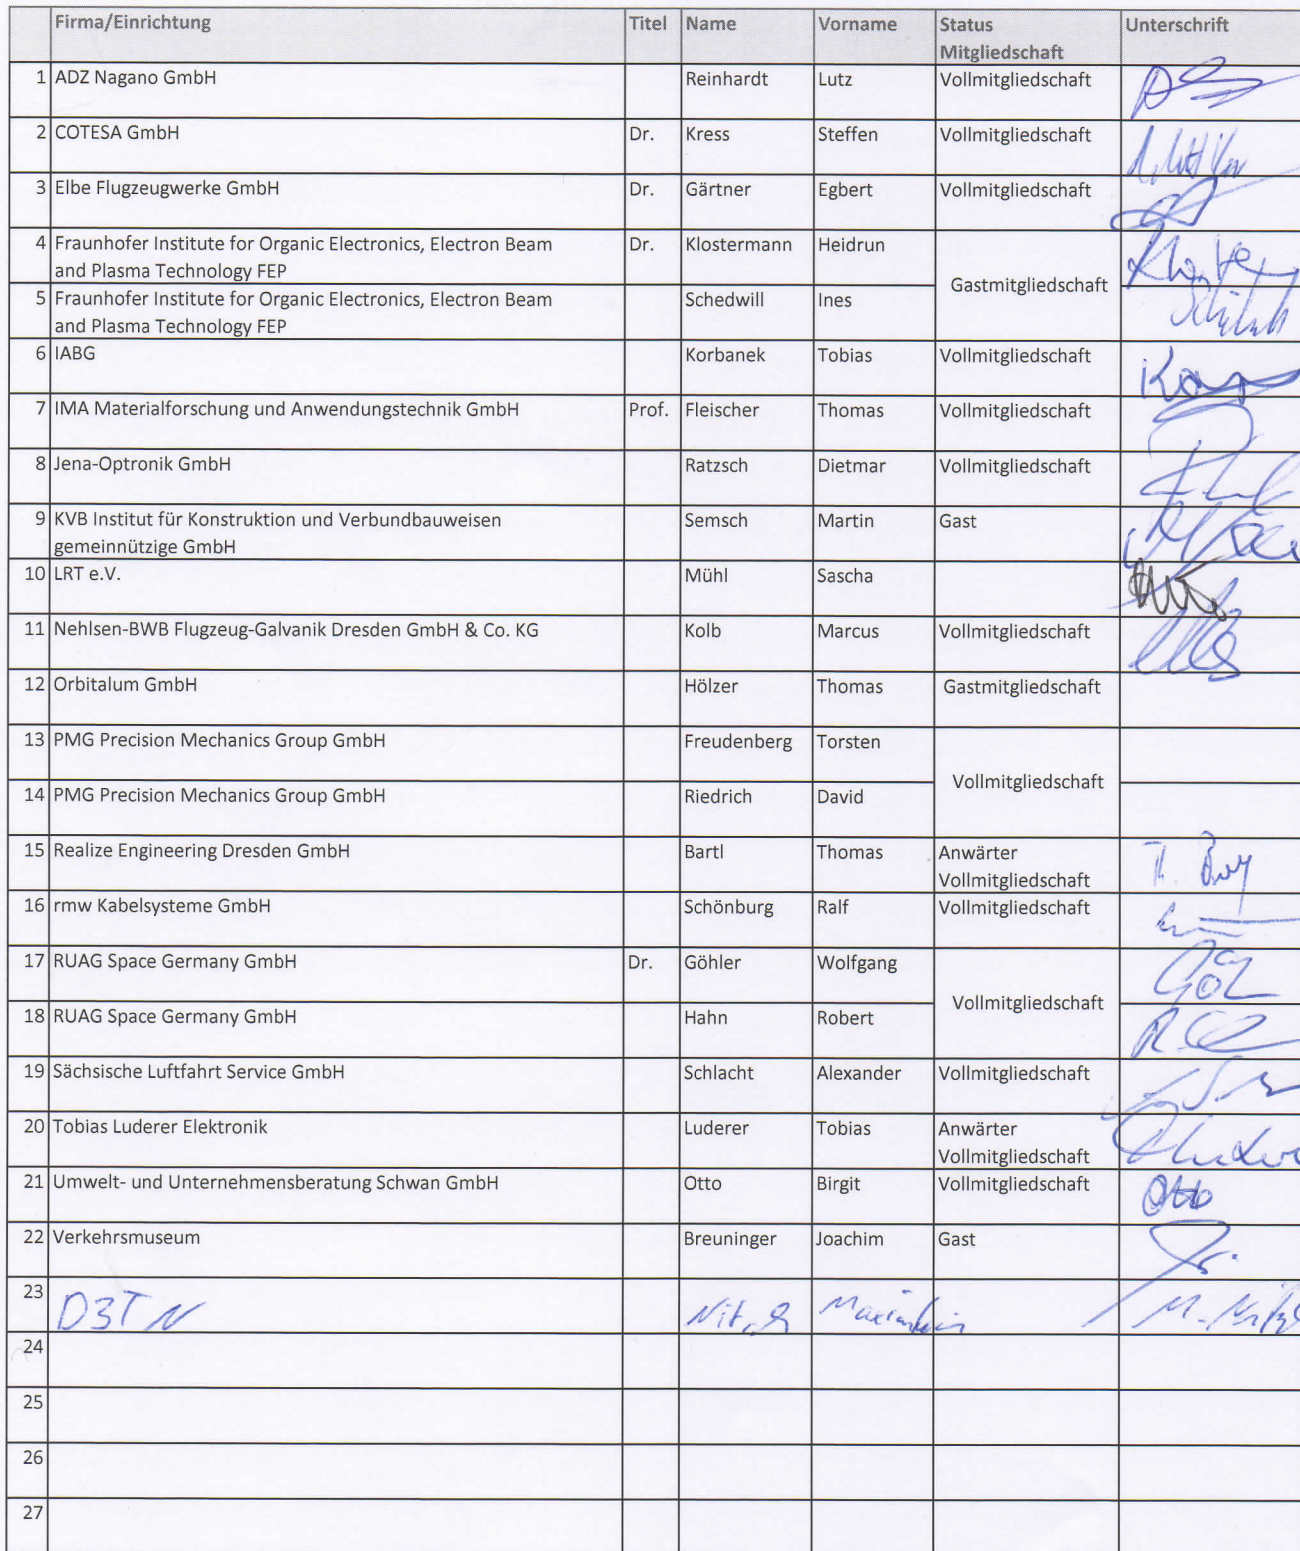 Firma/Einrichtung Titel Name Vorname Status Unterschrift
Mitgliedschaft
1 ADZ Nagano GmbH Reinhardt Lutz Vollmitgliedschaft
2 COTESA GmbH Dr. Kress Steffen Vollmitgliedschaft
3 Elbe Flugzeugwerke GmbH Dr. Gärtner Egbert Vollmitgliedschaft
4 Fraunhofer Institute for Organic Electronics, Electron Beam Dr. Klostermann Heidrun
and Plasma Technology FEP
Gastmitgliedschaft
5 Fraunhofer Institute for Organic Electronics, Electron Beam Schedwill Ines
and Plasma Technology FEP
6 IABG Korbanek Tobias Vollmitgliedschaft
7 IMA Materialforschung und Anwendungstechnik GmbH Prof. Fleischer Thomas Vollmitgliedschaft
8 Jena-Optronik GmbH Ratzsch Dietmar Vollmitgliedschaft
9 KVB Institut für Konstruktion und Verbundbauweisen Semsch Martin Gast
gemeinnützige GmbH
10 LRT e.V. Mühl Sascha
11 Nehlsen-BWB Flugzeug-Galvanik Dresden GmbH & Co. KG Kolb Marcus Vollmitgliedschaft
12 Orbitalum GmbH Hölzer Thomas Gastmitgliedschaft
13 PMG Precision Mechanics Group GmbH Freudenberg Torsten
Vollmitgliedschaft
14 PMG Precision Mechanics Group GmbH Riedrich David
15 Realize Engineering Dresden GmbH Bartl Thomas Anwärter
Vollmitgliedschaft
16 rmw Kabelsysteme GmbH Schönburg Ralf Vollmitgliedschaft
17 RUAG Space Germany GmbH Dr. Göhler Wolfgang
Vollmitgliedschaft
18 RUAG Space Germany GmbH Hahn Robert
19 Sächsische Luftfahrt Service GmbH Schlacht Alexander Vollmitgliedschaft
20 Tobias Luderer Elektronik Luderer Tobias Anwärter
Vollmitgliedschaft
21 Umwelt- und Unternehmensberatung Schwan GmbH Otto Birgit Vollmitgliedschaft Otto
22 Verkehrsmuseum Breuninger Joachim Gast
23 D3TN Maximilian
24
25
26
27